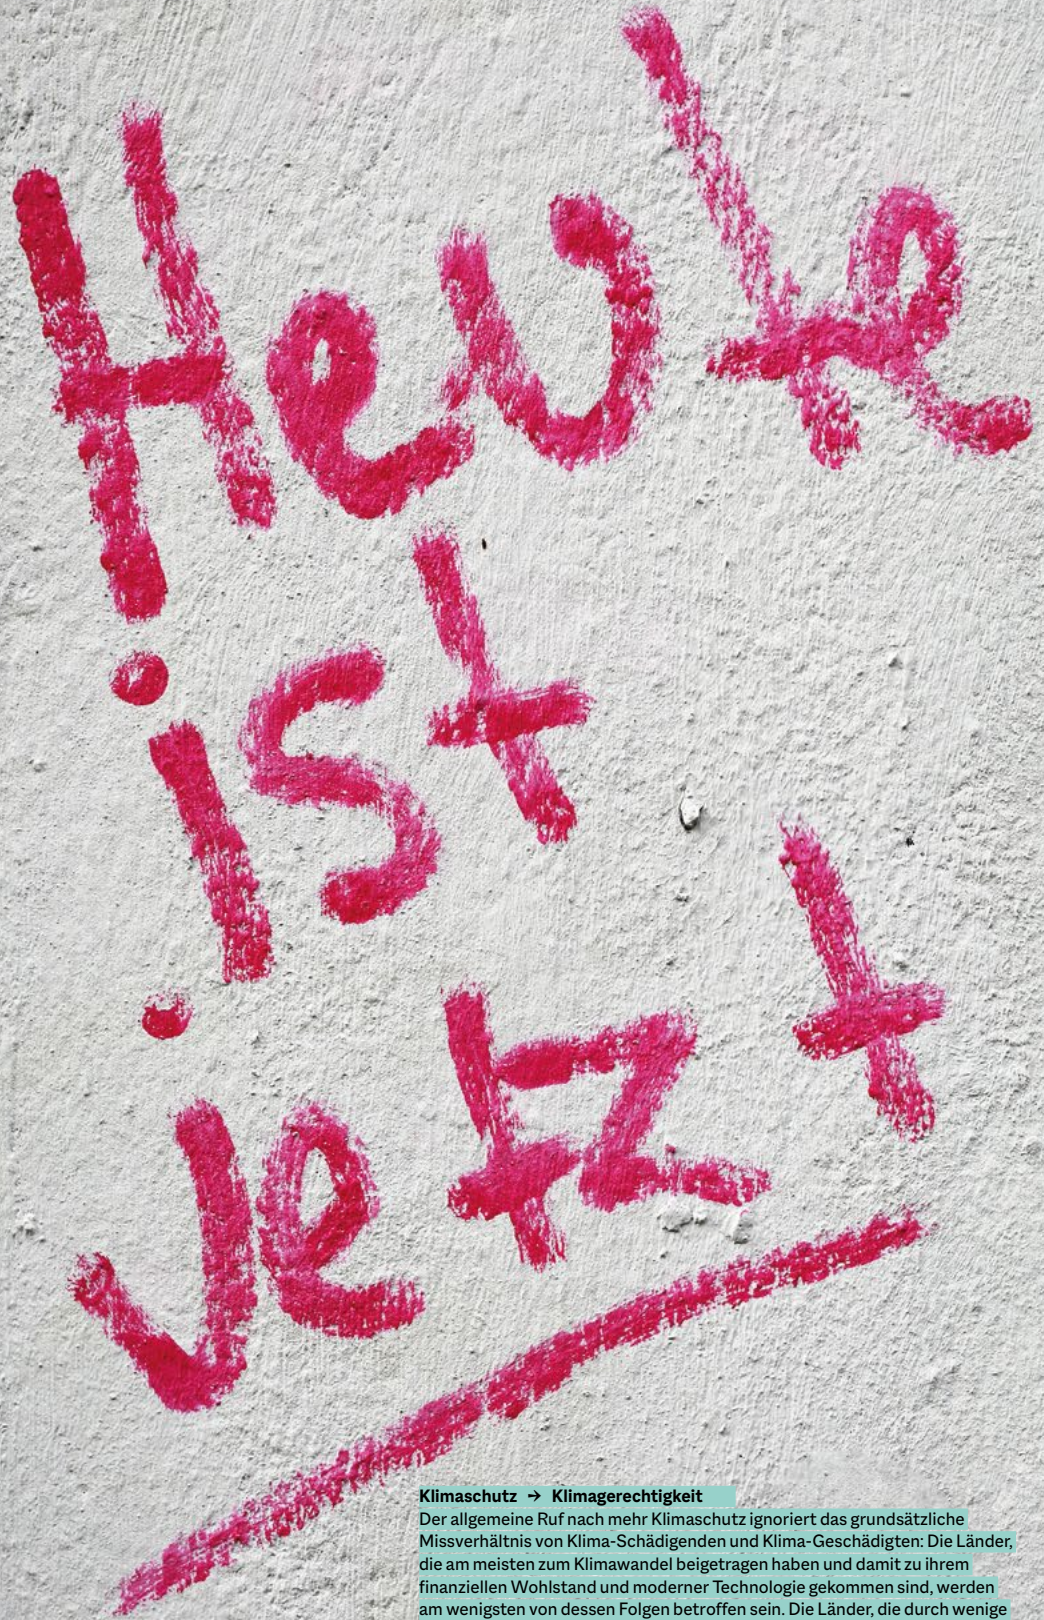 Heute
ist
jetzt
Klimaschutz → Klimagerechtigkeit
Der allgemeine Ruf nach mehr Klimaschutz ignoriert das grundsätzliche
Missverhältnis von Klima-Schädigenden und Klima-Geschädigten: Die Länder,
die am meisten zum Klimawandel beigetragen haben und damit zu ihrem
finanziellen Wohlstand und moderner Technologie gekommen sind, werden
am wenigsten von dessen Folgen betroffen sein. Die Länder, die durch wenige